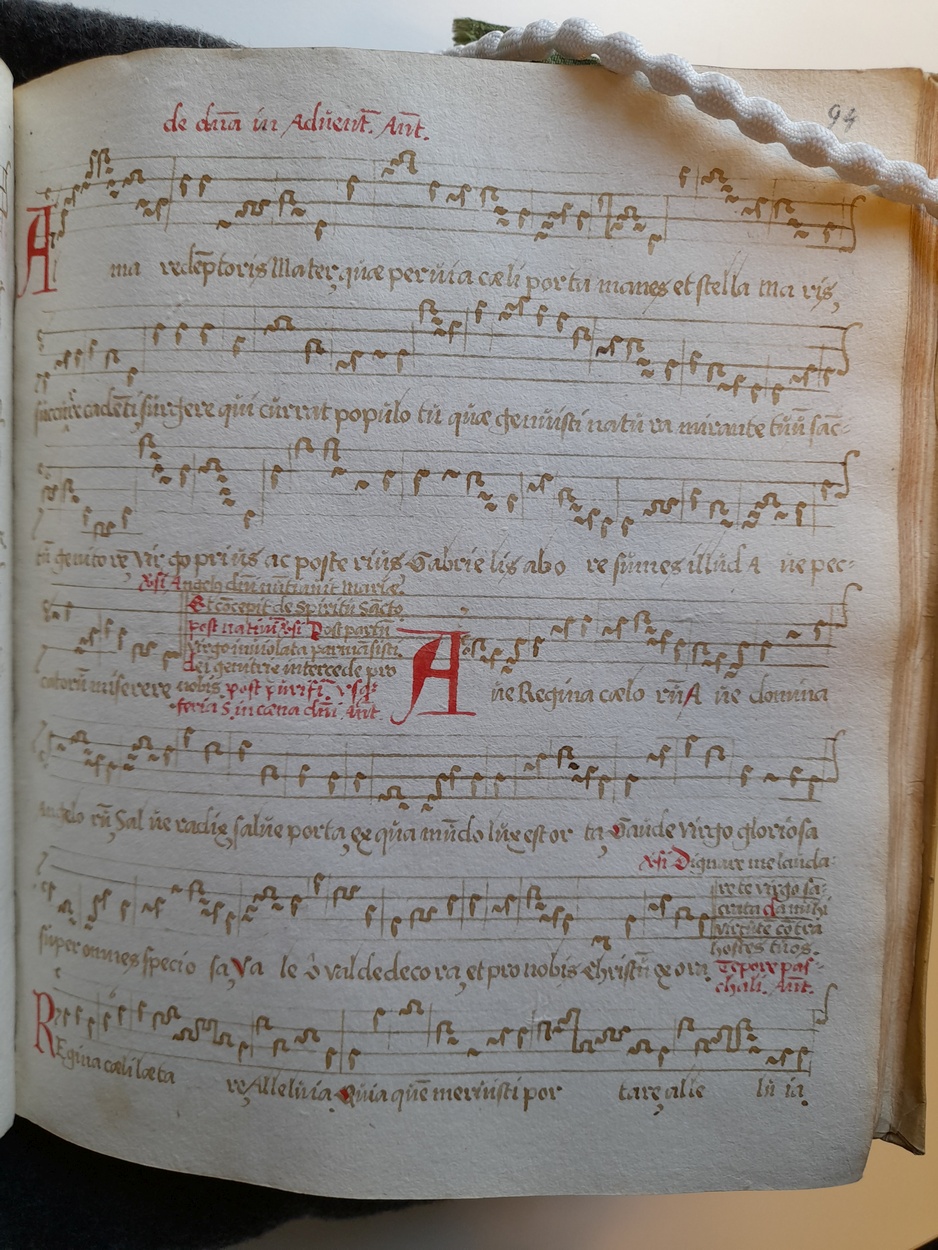 94
de dña in Adūent. Añt.
Alma redēptoris Mater, quæ peruia cæli porta manes et stella ma ris,
succūre cadēti surgere qui currat populo tu quæ genuisti natu ra mirante tuū sāc-
tū genitorē Vir go prius ac poste rius Gabrie lis ab o re sumes illud A ue pec-
℣si Angelo dñi nūtiauit Mariæ.
Et cōcepit de Spiritu Sācto
post natiui. ℣si Post partū
virgo inuiolata parmāsisti
dei genitrix intercede pro
catorū miserere nobis. post purifi. vsq:
feria 5. in cæna dñi. Añt
Aue Regina cælo rū A ue domina
Angelo rū Sal ue radix salue porta, ex qua mūdo lux est or ta, Gaude virgo gloriosa
℣si Dignare me lauda-
re te virgo sa-
crata da mihi
virtutē cōtra
hostes tuos.
super omnes specio sa Va le o valde deco ra, et pro nobis Christū exora. Tēpore pas-
chali. Añt.
Regina cæli læta
re Alleluia Quia quē meruisti por tare, alle lu ia